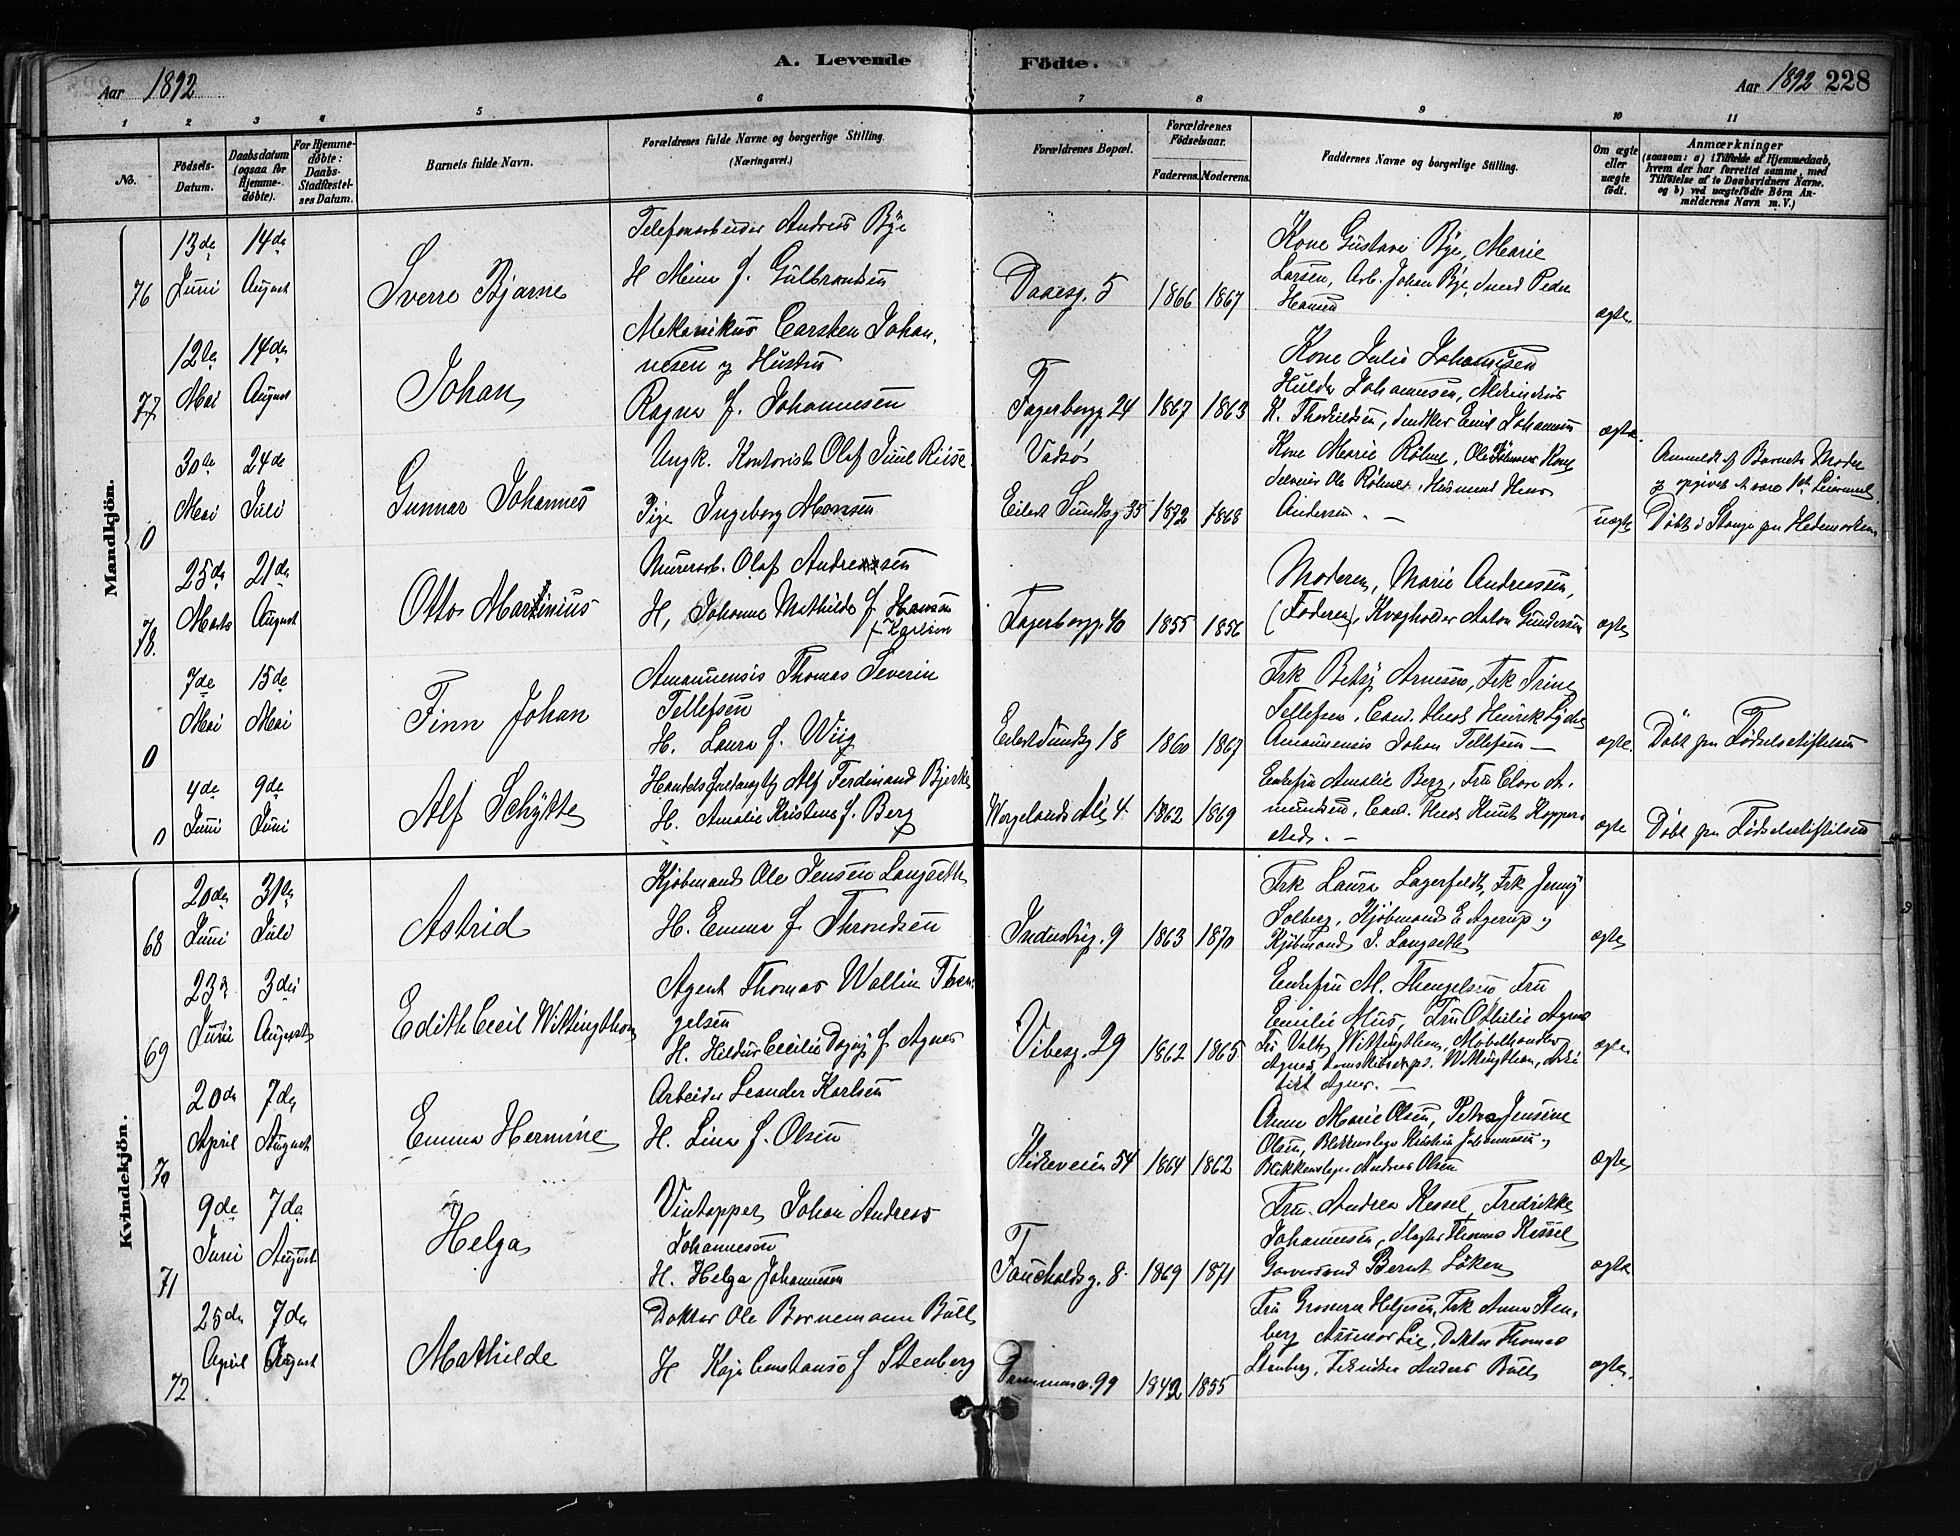 A. Levende Födte.
Aar 1892
Aar 1892 228
1 2 3 4 5 6 7 8 9 10 11
No.
Födsels-
Datum.
Daabsdatum
(ogsaa for
Hjemme-
døbte).
For Hjemme-
døbte:
Daabs-
Stadfæstel-
ses Datum.
Barnets fulde Navn.
Forældrenes fulde Navne og borgerlige Stilling.
(Næringsvei.)
Forældrenes Bopæl.
Forældrenes
Födselsaar.
Faderens. Moderens.
Faddernes Navne og borgerlige Stilling.
Om ægte
eller
uægte
födt.
Anmærkninger
(saasom: a) i Tilfælde af Hjemmedaab,
hvem der har forrettet samme, med
Tilföielse af to Daabsvidners Navne,
og b) ved uægtefödte Börn An-
melderens Navn m. V.)
Mandkjön.
76
13de Juni
14de August
Sverre Bjarne
Telefonarbeider Andreas Bye
H Mina f. Gulbrandsen
Daaesg. 5
1866 1867
Kone Gustava Bye, Marie
Larsen, Arb. Johan Bye, Peder
Hansen
ægte
77
12te Mai
14de August
Johan
Mekanikus Carsten Johan-
nesen og Hustru
Ragna f. Johannesen
Fagerborgg. 24
1867 1863
Kone Julie Johannesen
Hulda Johannesen,
K. Thorkildsen, Snedker Emil Johannesen
ægte
0
30te Mai
24de Juli
Gunnar Johannes
Ungk. Kontorist Olaf Juul Riise
Pige Ingeborg Monsen
Vadsø
Eilert Sundtsg 35
1872 1868
Kone Marie Röhne,
Ole Röhne, Husmand Hans
Andersen. —
uægte
Anmeldt af Barnets Moder
og opgivet at være 1ste Leiermaal.
Døbt i Stange paa Hedemarken
78.
25de Marts
21de August
Otto Martinius
Murerarb. Olaf Andreassen
H, Johanne Mathilde f. Hansen
f. Karlsen
Fagerborgg. 40
1855 1856
Moderen, Marie Andreasen,
(Faderen), Kvægholder Anton Gundersen
ægte
0
7de Mai
15de Mai
Finn Johan
Amanuensis Thomas Severin
Tellefsen
H. Laura f. Wiig
Eilert Sundtsg 18
1860 1867
Frk Betsy Arnesen, Frk Trine
Tellefsen, Cand. Theol. Henrik
Amanuensis Johan Tellefsen —
ægte
Døbt paa Fødselsstiftelsen
0
4de Juni
9de Juni
Alf Schytte
Alf Ferdinand Bjerke
H. Amalie Kristine f. Berg
Wergelands Alé 4.
1862 1869
Enkefru Amalie Berg, Fru Clara A-
mundsen, Cand. Theol. Knut Koppers-
stad. —
ægte
Døbt paa Fødselsstiftelsen
Kvindekjön.
68
20de Juni
31te Juli
Astrid
Kjøbmand Ole Jensen Langseth
H. Emma f. Throndsen
Industrig. 9
1863 1870
Frk Laura Lagerfeldt, Frk Jenny
Solberg, Kjøbmand E Agerup og
Kjøbmand J. Langseth
ægte
69
23de Juni
3die August
Edith Cecil Wittingthom
Agent Thomas Wallin Then-
gelsen
H. Hildur Cecilie Dagny f. Agnes
Vibesg. 29
1862 1865
Enkefru M. Thengelsen Fru
Emilie Mus, Fru Othilie Agnes
Fru Wittingthom, Møbelhandler
Agnes, Wittingthom, Arki-
tekt Agnes. —
ægte
70
20de April
7de August
Emma Hermine
Arbeider Leander Karlsen
H. Lina f. Olsen
Kirkeveien 54
1864 1862
Anne Marie Olsen, Petra Jensine
Olsen, Blikkenslager Kristian Johannesen og
Blikkenslager Andreas Olsen
Ægte
71
9de Juni
7de August
Helga
Vintapper Johan Andreas
Johannesen
H. Helga Johannesen
Fauchaldsg. 8.
1869 1871
Fru. Andrea Kessel, Fredrikke
Johannesen, Slagter Thomas Kessel
Garversvend Bernt Löken
ægte
72
25de April
7de August
Mathilde
Doktor Ole Bornemann Bull
H Kaja Constanse f Stenberg
99
1842 1855
Fru Grosserer Helgesen, Frk Anna Sten-
berg Assessor Lie, Doktor Thomas
Stenberg, Tekniker Anders Bull
ægte.